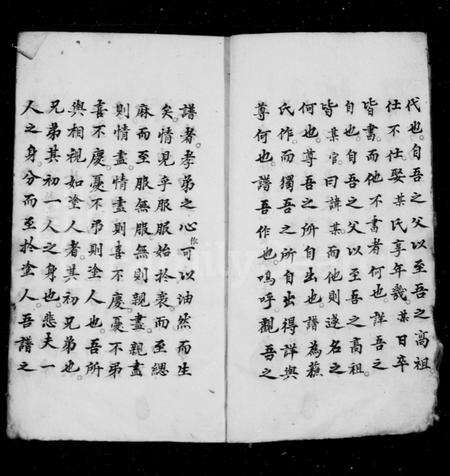 代也。自吾之父以至吾之高祖
仕不仕娶某氏享年幾某日卒
皆書。而他不書者何也。詳吾之
自也。自吾之父以至吾之高祖。
皆某官曰諱某而他則遂名之
何也。尊吾之所自出也譜為蘇
氏作。而獨吾之所自出得詳與
尊何也。譜吾作也。嗚呼觀吾之
譜者。孝弟之心可以油然而生
矣。情見乎服服始於衰而至緦
麻而至服無服無則親盡。親盡
則情盡情盡則喜不慶。憂不弔
喜不慶。憂不弔則塗人也。吾所
與相視如塗人者。其初兄弟也。
兄弟其初一人之身也。悲夫一
人之身。分而至於塗人。吾譜之